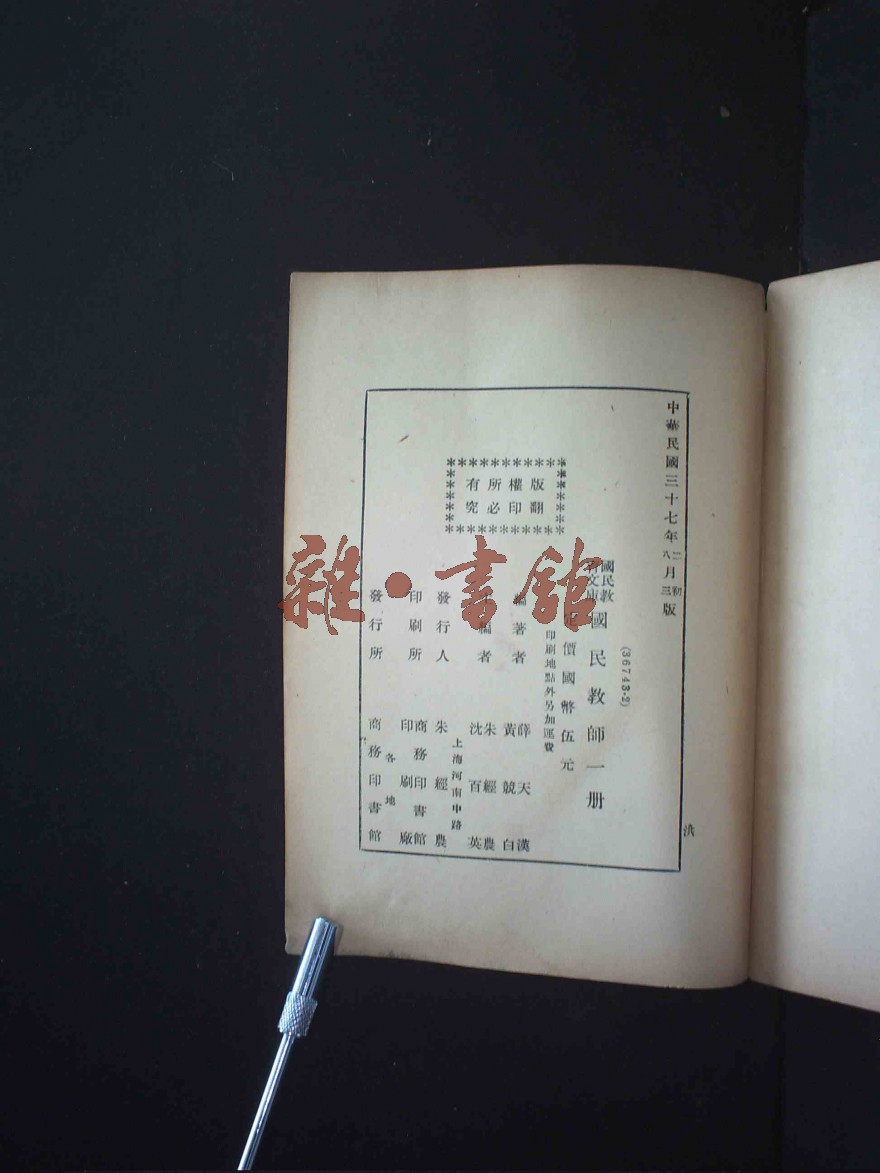 中華民國三十七年二月初版
八月三版
(36743·2)
國民教
育文庫 國民教師一册
定價國幣伍元
印刷地點外另加運費
版權所有
翻印必究
編著者 薛天漢
黃競白
主編者 朱經農
沈百英
上海河南中路
發行人 朱經農
印刷所 商務印書館
印刷廠
各地
發行所 商務印書館
洪
雜·書館